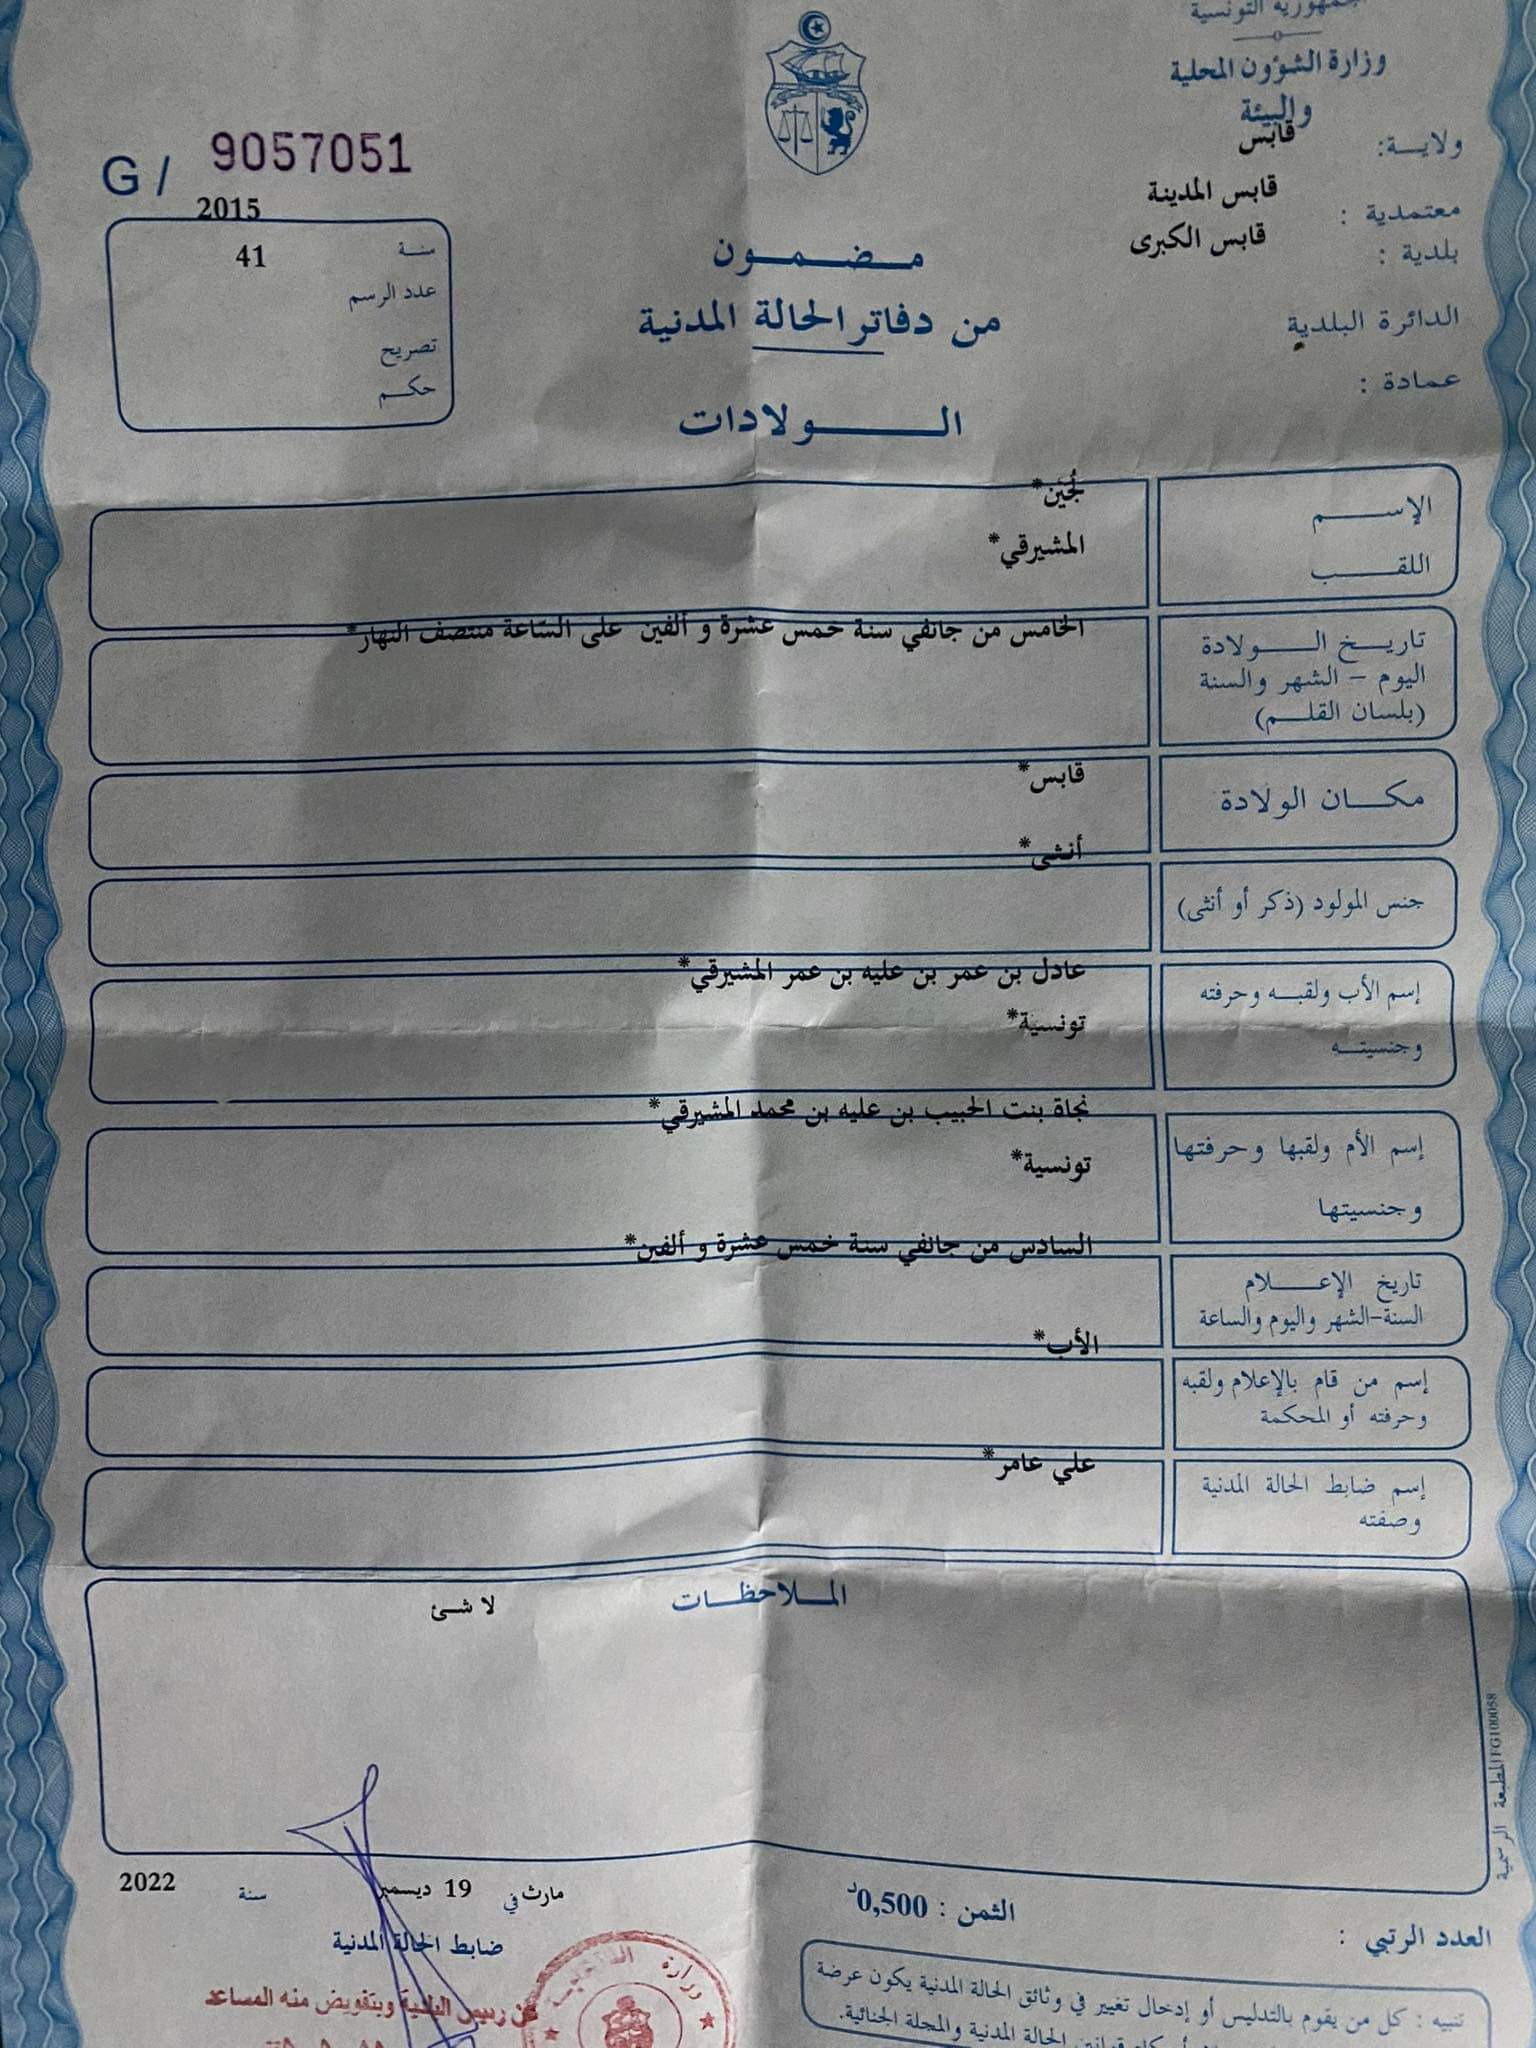 الجمهورية التونسية
وزارة الشؤون المحلية
والبيئة
ولايـــة: قابس
معتمدية : قابس المدينة
بلدية : قابس الكبرى
الدائرة البلدية
عمادة :
G / 9057051
2015
سنـــة
41
عدد الرسم
تصريح
حكـم
مـــضـــمـــون
من دفاتر الحالة المدنية
الـــولادات
الإســـــم
لُجَيْن*
اللقـــــب
المشيرقي*
تاريـــخ الـــــولادة
اليوم – الشهر والسنة
(بلسان القلـــم)
الخامس من جانفي سنة خمس عشرة و ألفين على السّاعة منتصف النهار*
مكـــان الولادة
قابس*
جنس المولود (ذكر أو أنثى)
أنثى*
إسم الأب ولقبـــه وحرفته
وجنسيتـــه
عادل بن عمر بن عليه بن عمر المشيرقي*
تونسية*
إسم الأم ولقبها وحرفتها
وجنسيتها
نجاة بنت الحبيب بن عليه بن محمد المشيرقي*
تونسية*
تاريخ الإعـــــلام
السنة-الشهر واليوم والساعة
السادس من جانفي سنة خمس عشرة و ألفين*
إسم من قام بالإعلام ولقبه
وحرفته أو المحكمة
الأب*
إسم ضابط الحالة المدنية
وصفته
علي عامر*
الملاحظـــات
لا شئ
المطبعة الرسمية FG100058
مارث في 19 ديسمبر سنة 2022
ضابط الحالة المدنية
عن رئيس البلدية وبتفويض منه المساعد
وزارة
الثمن : 0,500د
العدد الرتبي :
تنبيه : كل من يقوم بالتدليس أو إدخال تغيير في وثائق الحالة المدنية يكون عرضة
قوانين الحالة المدنية والمجلة الجنائية.